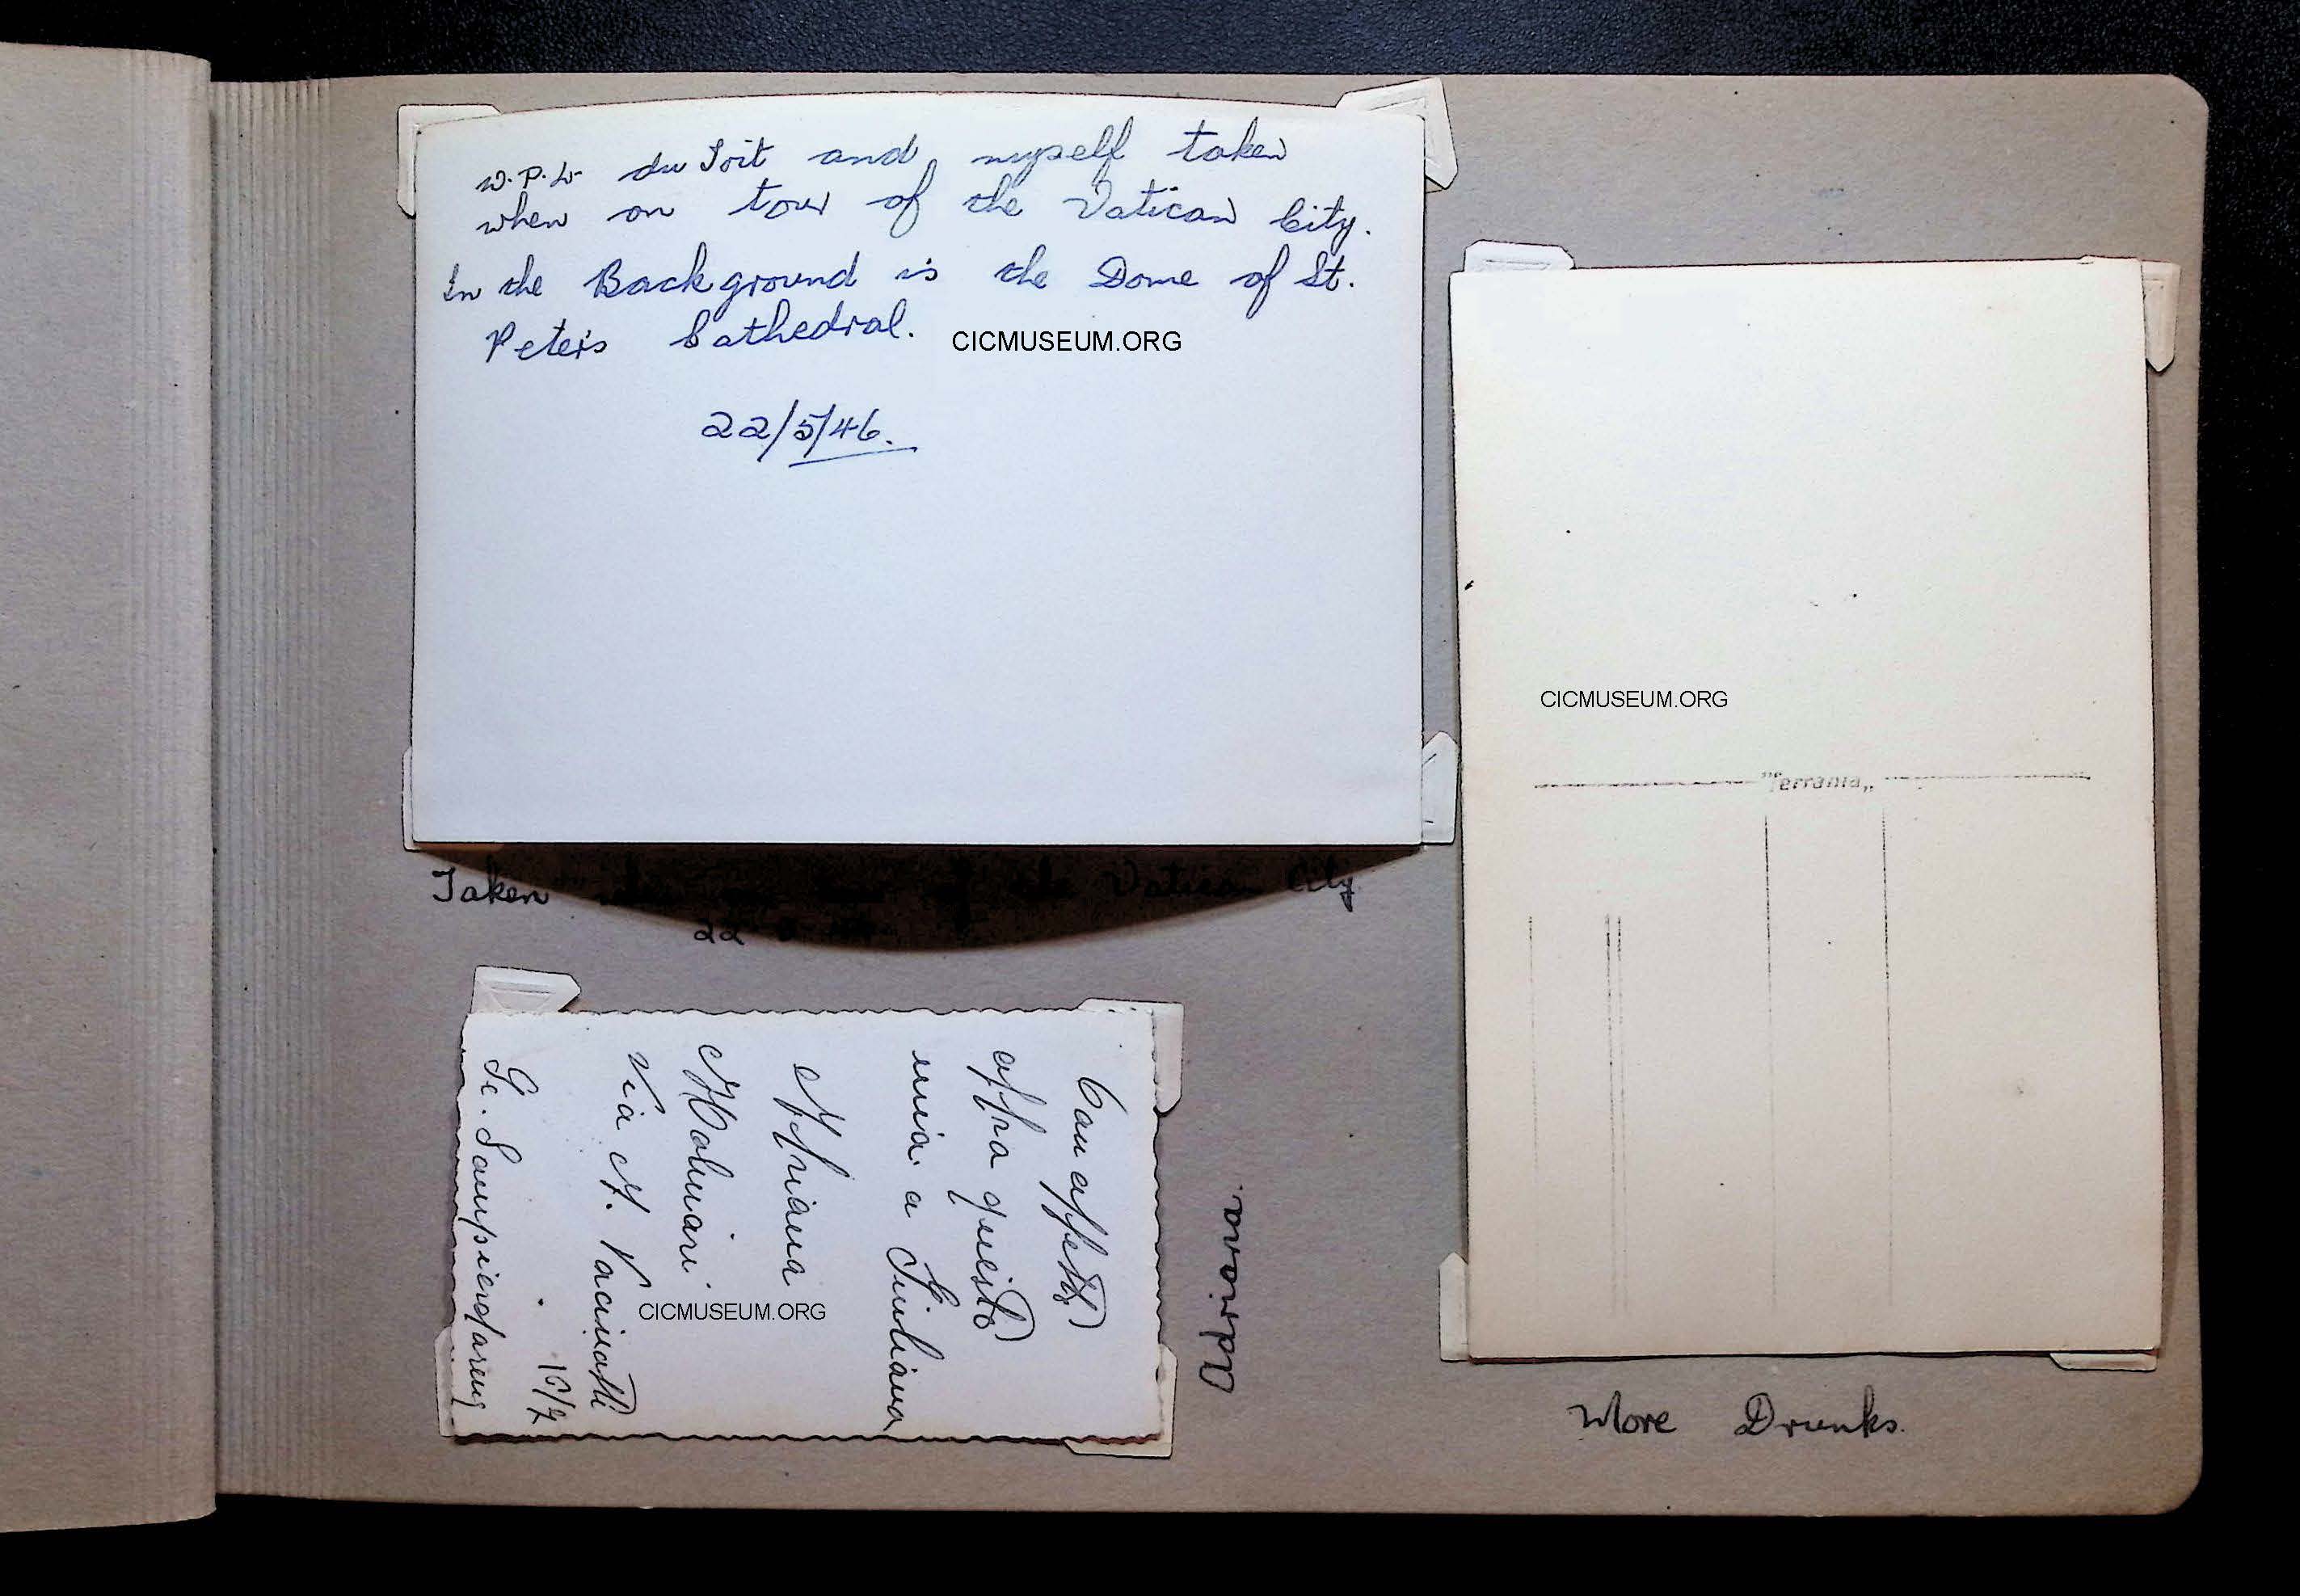 W.P.W. du Toit and myself taken
when on tour of the Vatican City.
In the Background is the Dome of St.
Peter's Cathedral.
CICMUSEUM.ORG
22/5/46.
Taken the Vatican City
22
Con affetto
offro questo
mia a Giuliana
Via G.
Ge. Sampierdarena
CICMUSEUM.ORG
Adriana.
CICMUSEUM.ORG
"Ferrania"
More Drunks.